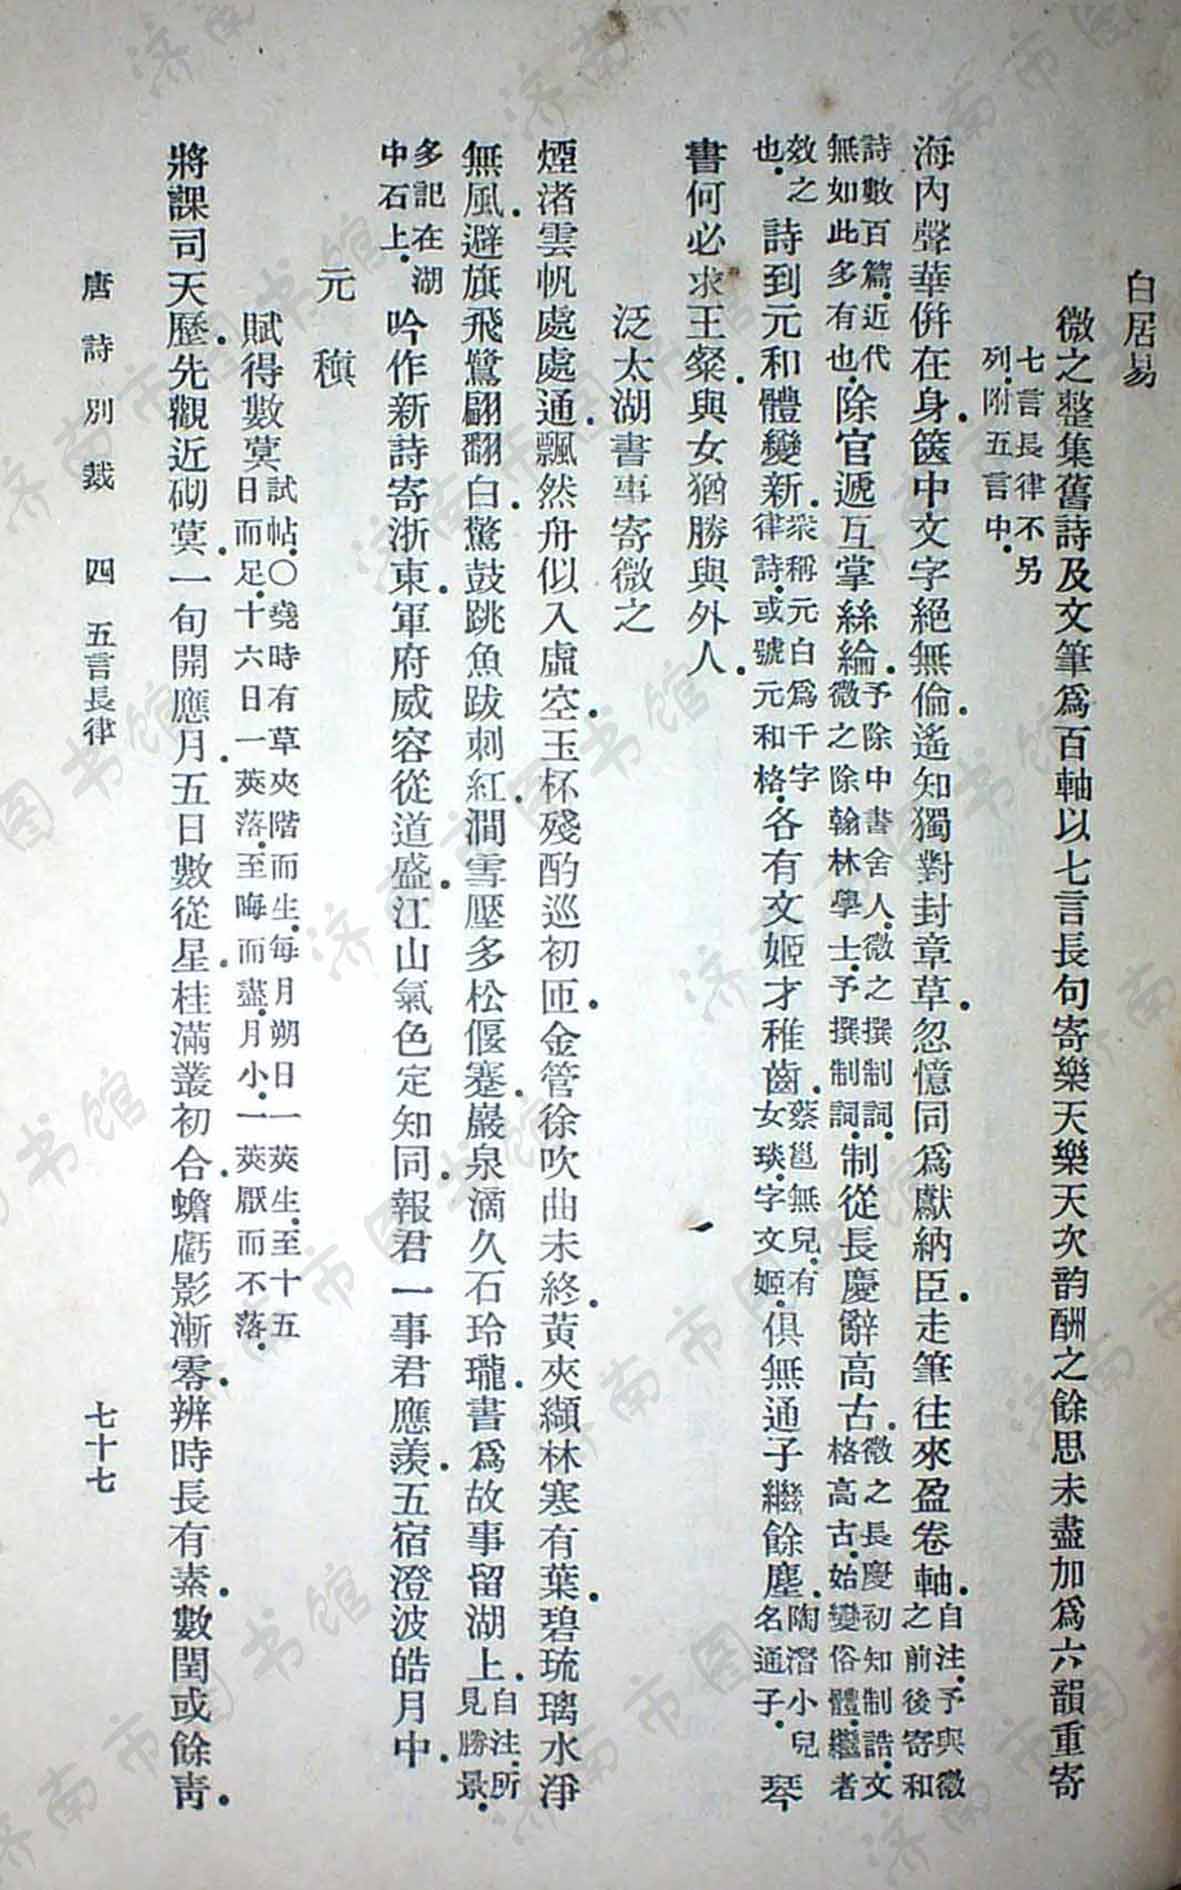 白居易
微之整集舊詩及文筆爲百軸以七言長句寄樂天樂天次韵酬之餘思未盡加爲六韻重寄
七言長律不另列。附五言中。
海內聲華併在身。篋中文字絕無倫。遙知獨對封章草。忽憶同爲獻納臣。走筆往來盈卷軸。自注。予與微之前後寄和
詩數百篇。近代無如此多有也。除官遞互掌絲綸。予除中書舍人。微之撰制詞。微之除翰林學士。予撰制詞。制從長慶辭高古。微之長慶初知制誥。文格高古。始變俗體。繼者
效之也。詩到元和體變新。衆稱元白爲千字律詩。或號元和格。各有文姬才稚齒。蔡邕無兒。有女琰。字文姬。俱無通子繼餘塵。陶潛小兒名通子。琴
書何必求王粲。與女猶勝與外人。
泛太湖書事寄微之
煙渚雲帆處處通。飄然舟似入虛空。玉杯殘酌巡初匝。金管徐吹曲未終。黃夾纈林寒有葉。碧琉璃水淨
無風。避旗飛鷺翩翻白。驚鼓跳魚跋刺紅。澗雪壓多松偃蹇。巖泉滴久石玲瓏。書爲故事留湖上。自注。所見勝景。
多記在湖中石上。吟作新詩寄浙東。軍府威容從道盛。江山氣色定知同。報君一事君應羨。五宿澄波皓月中。
元稹
賦得數蓂試帖。〇堯時有草夾階而生。每月朔日一莢生。至十五日而足。十六日一莢落。至晦而盡。月小。一莢厭而不落。
將課司天歷。先觀近砌蓂。一旬開應月。五日數從星。桂滿叢初合。蟾虧影漸零。辨時長有素。數閏或餘靑。
唐詩別裁　四　五言長律　七十七
济南市图书馆